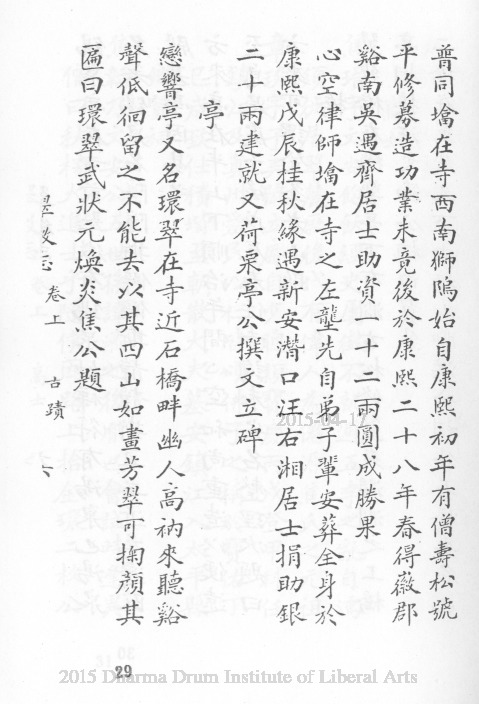 普同塔在寺西南獅隖始自康熙初年有僧壽松號
平修募造功業未竟後於康熙二十八年春得徽郡
谿南吳遇齊居士助資一十二兩圓成勝果
心空律師塔在寺之左壟先自弟子輩安葬全身於
康熙戊辰桂秋緣遇新安潛口汪右湘居士捐助銀
二十兩建就又荷栗亭公撰文立碑
亭
戀響亭又名環翠在寺近石橋畔幽人高衲來聽谿
聲低徊留之不能去以其四山如畫芳翠可掬顏其
匾曰環翠武狀元煥炎焦公題
卷上
古蹟
六
2015-04-17
29
2015 Dharma Drum Institute of Liberal Arts